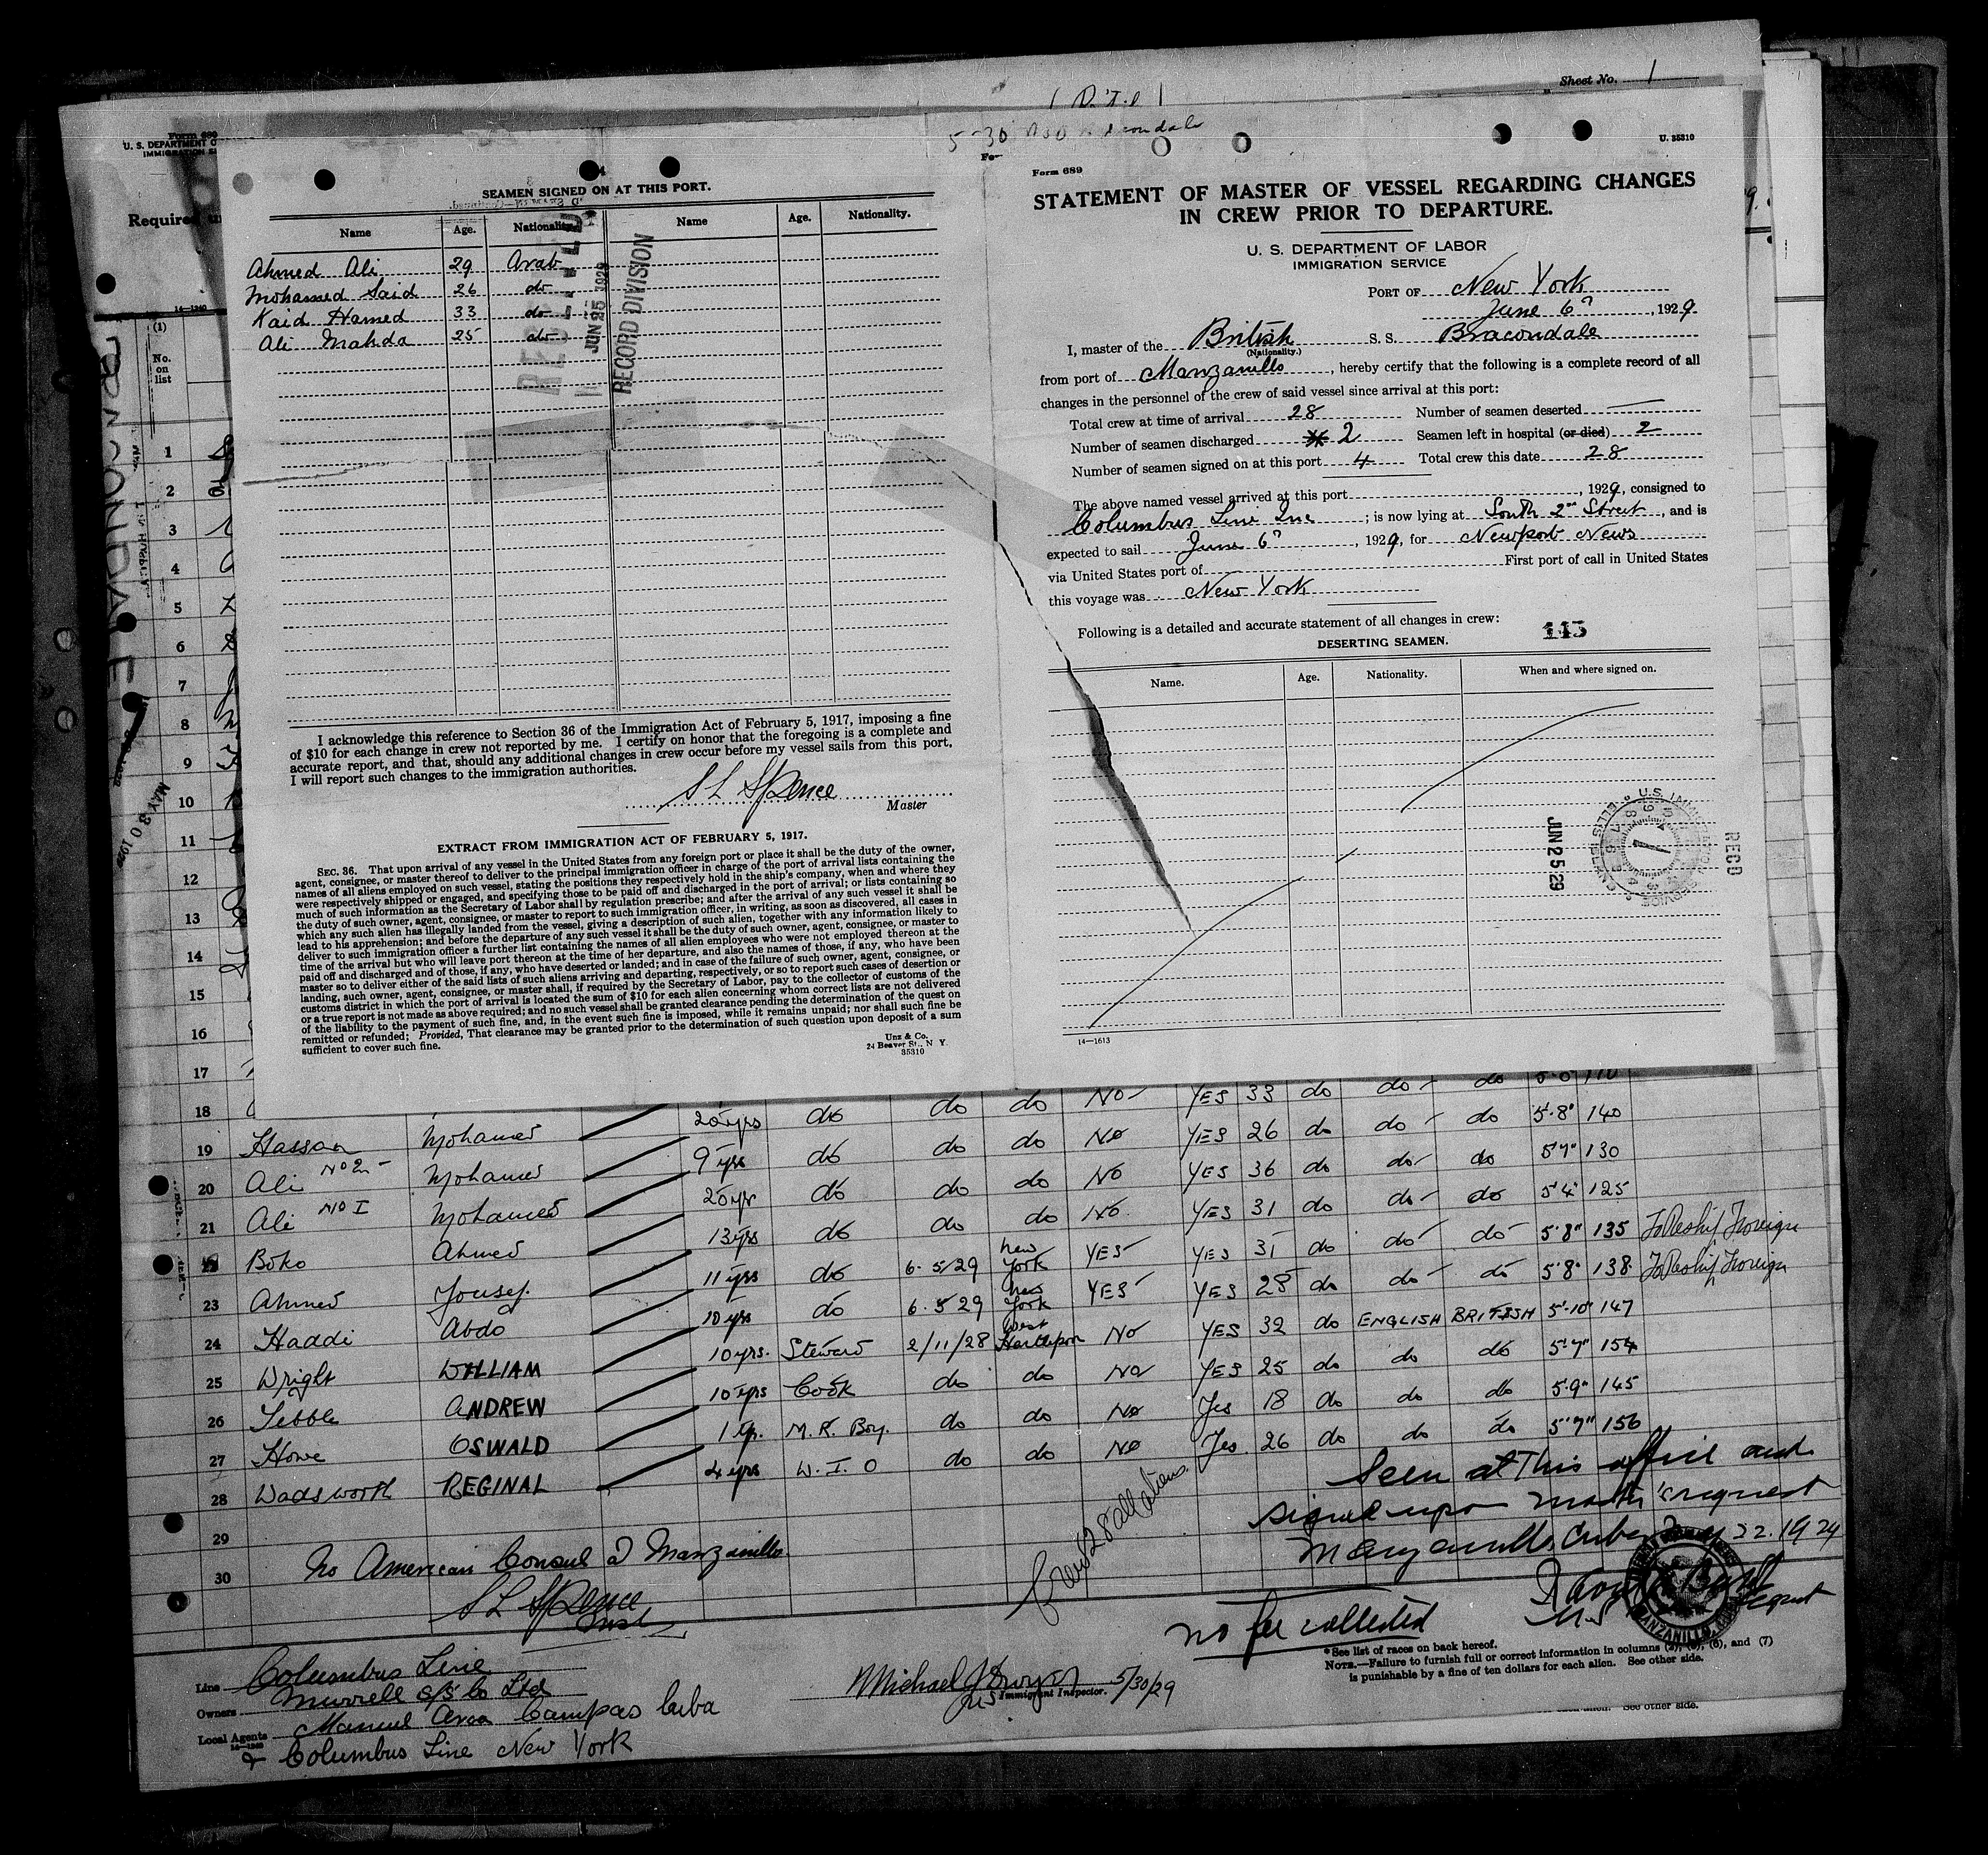 Sheet No. 1
5-30
Form 689
U. S. DEPARTMENT O
IMMIGRATION S
Required u
14—1240
(1)
No.
on
list
BRACONDALE
MAY 30 1929
SEAMEN SIGNED ON AT THIS PORT.
Name Age. Nationality. Name Age. Nationality.
Ahmed Ali 29 Arab
Mohamed Said 26 do
Kaid Hamed 33 do
Ali Mahda 25 do
JUN 25 1929
RECORD DIVISION
I acknowledge this reference to Section 36 of the Immigration Act of February 5, 1917, imposing a fine
of $10 for each change in crew not reported by me. I certify on honor that the foregoing is a complete and
accurate report, and that, should any additional changes in crew occur before my vessel sails from this port,
I will report such changes to the immigration authorities.
S L Spence
Master
EXTRACT FROM IMMIGRATION ACT OF FEBRUARY 5, 1917.
SEC. 36. That upon arrival of any vessel in the United States from any foreign port or place it shall be the duty of the owner,
agent, consignee, or master thereof to deliver to the principal immigration officer in charge of the port of arrival lists containing the
names of all aliens employed on such vessel, stating the positions they respectively hold in the ship's company, when and where they
were respectively shipped or engaged, and specifying those to be paid off and discharged in the port of arrival; or lists containing so
much of such information as the Secretary of Labor shall by regulation prescribe; and after the arrival of any such vessel it shall be
the duty of such owner, agent, consignee, or master to report to such immigration officer, in writing, as soon as discovered, all cases in
which any such alien has illegally landed from the vessel, giving a description of such alien, together with any information likely to
lead to his apprehension; and before the departure of any such vessel it shall be the duty of such owner, agent, consignee, or master to
deliver to such immigration officer a further list containing the names of all alien employees who were not employed thereon at the
time of the arrival but who will leave port thereon at the time of her departure, and also the names of those, if any, who have been
paid off and discharged and of those, if any, who have deserted or landed; and in case of the failure of such owner, agent, consignee, or
master so to deliver either of the said lists of such aliens arriving and departing, respectively, or so to report such cases of desertion or
landing, such owner, agent, consignee, or master shall, if required by the Secretary of Labor, pay to the collector of customs of the
customs district in which the port of arrival is located the sum of $10 for each alien concerning whom correct lists are not delivered
or a true report is not made as above required; and no such vessel shall be granted clearance pending the determination of the quest on
of the liability to the payment of such fine, and, in the event such fine is imposed, while it remains unpaid; nor shall such fine be
remitted or refunded; Provided, That clearance may be granted prior to the determination of such question upon deposit of a sum
sufficient to cover such fine.
Unz & Co.
24 Beaver St., N Y.
35310
U. 35310
Form 689
STATEMENT OF MASTER OF VESSEL REGARDING CHANGES
IN CREW PRIOR TO DEPARTURE.
U. S. DEPARTMENT OF LABOR
IMMIGRATION SERVICE
PORT OF New York
June 6, 1929.
I, master of the British S. S. Bracondale
(Nationality.)
from port of Manzanillo, hereby certify that the following is a complete record of all
changes in the personnel of the crew of said vessel since arrival at this port:
Total crew at time of arrival 28 Number of seamen deserted
Number of seamen discharged 2 Seamen left in hospital (or died) 2
Number of seamen signed on at this port 4 Total crew this date 28
The above named vessel arrived at this port , 1929, consigned to
Columbus Line Inc ; is now lying at South 2nd Street, and is
expected to sail June 6, 1929, for Newport News
via United States port of First port of call in United States
this voyage was New York
Following is a detailed and accurate statement of all changes in crew:
143
DESERTING SEAMEN.
Name. Age. Nationality. When and where signed on.
JUN 25 29
U.S. IMMIGRATION SERVICE ELLIS
REC'D
14—1613
1
2
3
4
5
6
7
8
9
10
11
12
13
14
15
16
17
18 20 yrs do do do No YES 33 do do do
19 Hassan Mohamed 9 yrs do do do No YES 26 do do do 5'8" 140
20 Ali No 2 Mohamed 20 yr do do do No YES 36 do do do 5'7" 130
21 Ali No I Mohamed 13 yrs do do do No YES 31 do do do 5'4" 125
Boko Ahmed 11 yrs do 6.5/29 New York YES YES 31 do do do 5'8" 135 To Reship Foreign
23 Ahmed Yousef 10 yrs do 6.5 29 New York YES YES 28 do do do 5'8" 138 To Reship Foreign
24 Haddi Abdo
25 Wright WILLIAM 10 yrs. Steward 2/11/28 West No YES 32 do ENGLISH BRITISH 5'-10" 147
26 ANDREW 10 yrs Cook do do No YES 25 do do do 5'7" 154
27 Howe OSWALD 1 yr. M. R. Boy. do do No Yes 18 do do do 5'9" 145
28 Wadsworth REGINAL 4 yrs W. T. O do do No Yes 26 do do do 5'7" 156
29
30
No American Consul at Manzanillo.
S L Spence
Crew 28 all aliens
Seen at this office and
signed upon master's request
Manzanillo, Cuba 22. 1929
MANZANILLO, CUBA
no fee collected
*See list of races on back hereof.
NOTE.—Failure to furnish full or correct information in columns (2), (5), (6), and (7)
is punishable by a fine of ten dollars for each alien. See other side.
Line Columbus Line
Owners Murrell S/S Co Ltd
Local Agents Manuel Arca Campas Cuba
14—1240
& Columbus Line New York
Michael J Dwyer 5/30/29
Immigrant Inspector.
See other side.